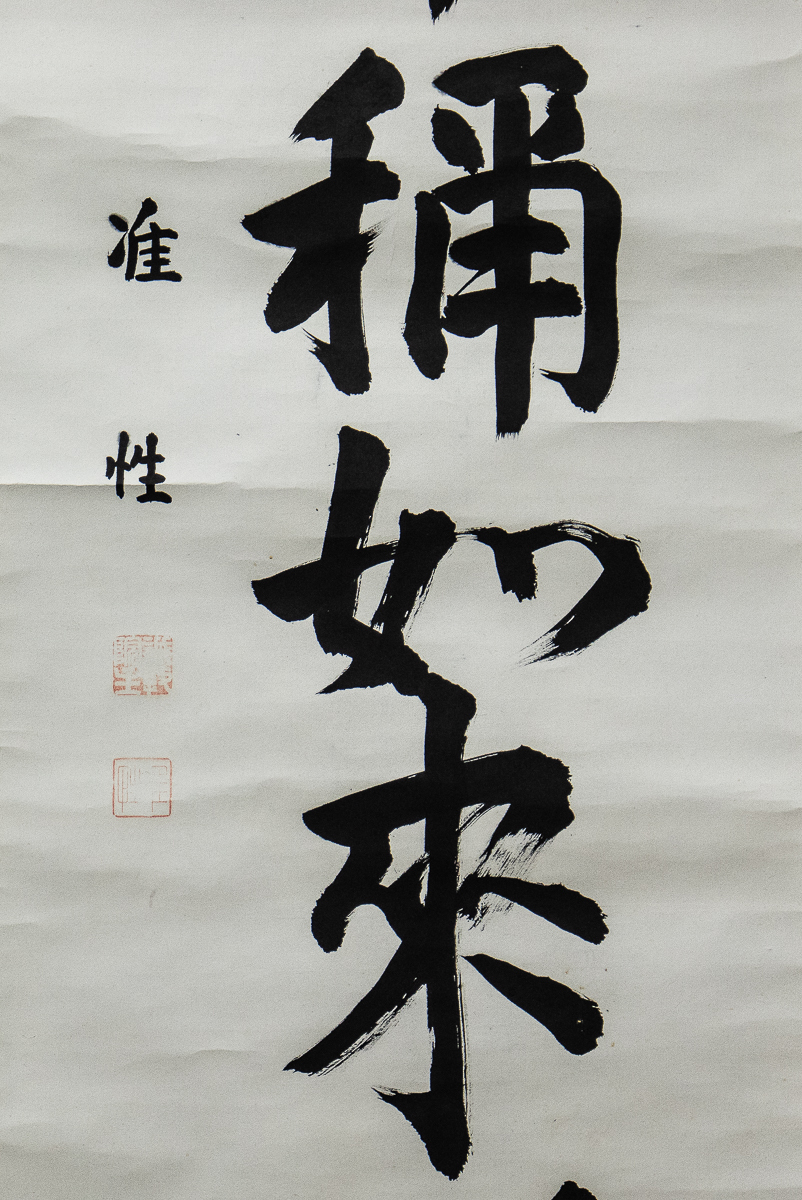 稱如來
准性